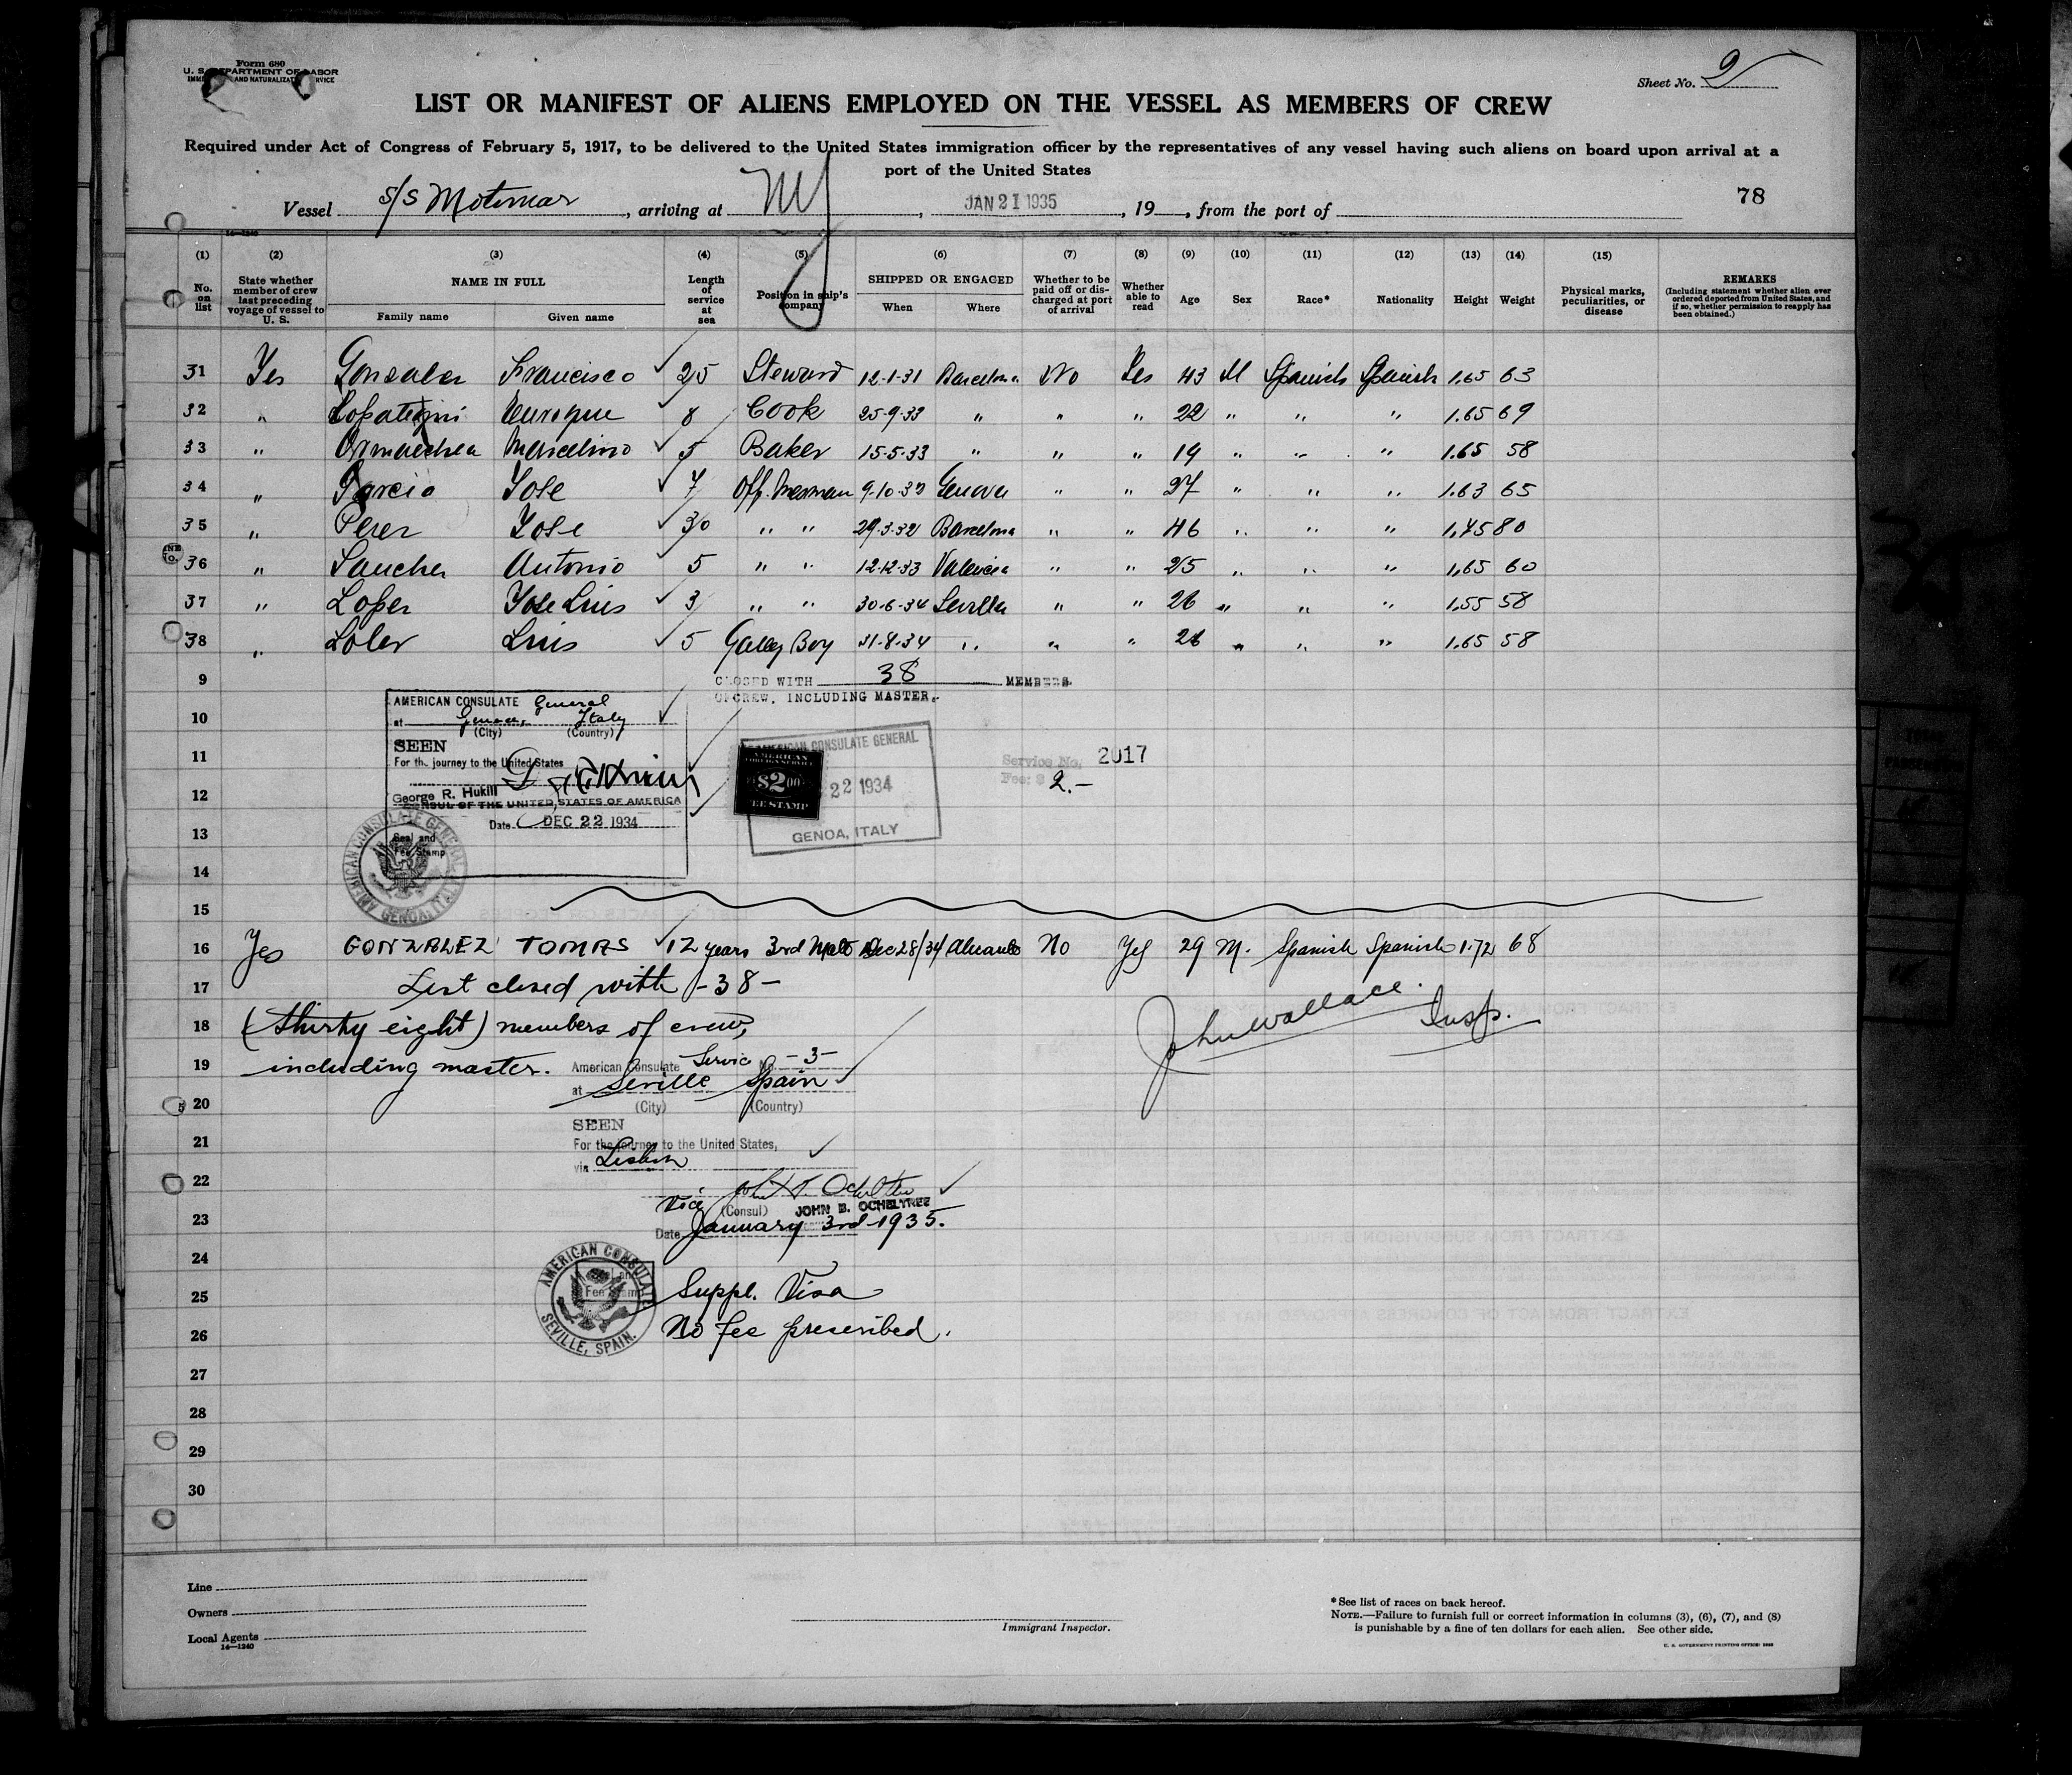 Form 680
U. S. DEPARTMENT OF LABOR
IMMIGRATION AND NATURALIZATION SERVICE
Sheet No. 2
LIST OR MANIFEST OF ALIENS EMPLOYED ON THE VESSEL AS MEMBERS OF CREW
Required under Act of Congress of February 5, 1917, to be delivered to the United States immigration officer by the representatives of any vessel having such aliens on board upon arrival at a
port of the United States
78
Vessel s/s Motomar, arriving at NY, JAN 21 1935, 19 , from the port of
14—1240
(1) (2) (3) (4) (5) (6) (7) (8) (9) (10) (11) (12) (13) (14) (15)
No. on list
State whether member of crew last preceding voyage of vessel to U. S.
NAME IN FULL
Family name Given name
Length of service at sea
Position in ship's company
SHIPPED OR ENGAGED
When Where
Whether to be paid off or discharged at port of arrival
Whether able to read
Age Sex Race* Nationality Height Weight
Physical marks, peculiarities, or disease
REMARKS
(Including statement whether alien ever ordered deported from United States, and if so, whether permission to reapply has been obtained.)
31 Yes Gonzalez Francisco 25 Steward 12-1-31 Barcelona No Yes 43 M Spanish Spanish 1.65 63
32 " 8 Cook 25-9-33 " " " 22 " " " 1.65 69
33 " Ormaechea Marcelino 5 Baker 15-5-33 " " " 19 " " " 1.65 58
34 " Garcia Jose 7 Off. Messman 9-10-33 Genova " " 27 " " " 1.63 65
35 " Perez Jose 30 " " 29-3-32 Barcelona " " 46 " " " 1.75 80
36 " Sanchez Antonio 5 " " 12-12-33 Valencia " " 25 " " " 1.65 60
37 " Lopez Jose Luis 3 " " 30-6-34 Sevilla " " 26 " " " 1.55 58
38 " Soler Luis 5 Galley Boy 31-8-34 " " " 26 " " " 1.65 58
9 CLOSED WITH 38 MEMBERS
OF CREW, INCLUDING MASTER.
AMERICAN CONSULATE General
10 at Genoa, Italy
(City) (Country)
SEEN
11 For the journey to the United States
AMERICAN CONSULATE GENERAL
AMERICAN FOREIGN SERVICE
$2.00
FEE STAMP
22 1934
GENOA, ITALY
Service No. 2017
Fee: $ 2.-
12 George R. Hukill
CONSUL OF THE UNITED STATES OF AMERICA
Date DEC 22 1934
13 Seal and
Fee Stamp
AMERICAN CONSULATE GENERAL GENOA, ITALY
14
15
16 Yes GONZALEZ TOMAS 12 years 3rd Mate Dec 28/34 Alicante No Yes 29 M. Spanish Spanish 1.72 68
17 List closed with -38-
John Wallace. Insp.
18 (thirty eight) members of crew,
19 including master.
American Consulate Service No. -3-
at Seville Spain
20 (City) (Country)
SEEN
21 For the journey to the United States,
via Lisbon
22 John B. Ocheltree
Vice (Consul) JOHN B. OCHELTREE
23 Date January 3rd-1935.
24 AMERICAN CONSULATE
Seal and
Fee Stamp
SEVILLE, SPAIN.
25 Suppl. Visa
26 No fee prescribed.
27
28
29
30
Line
Owners
Local Agents
14—1240
Immigrant Inspector.
* See list of races on back hereof.
NOTE.—Failure to furnish full or correct information in columns (3), (6), (7), and (8)
is punishable by a fine of ten dollars for each alien. See other side.
U. S. GOVERNMENT PRINTING OFFICE